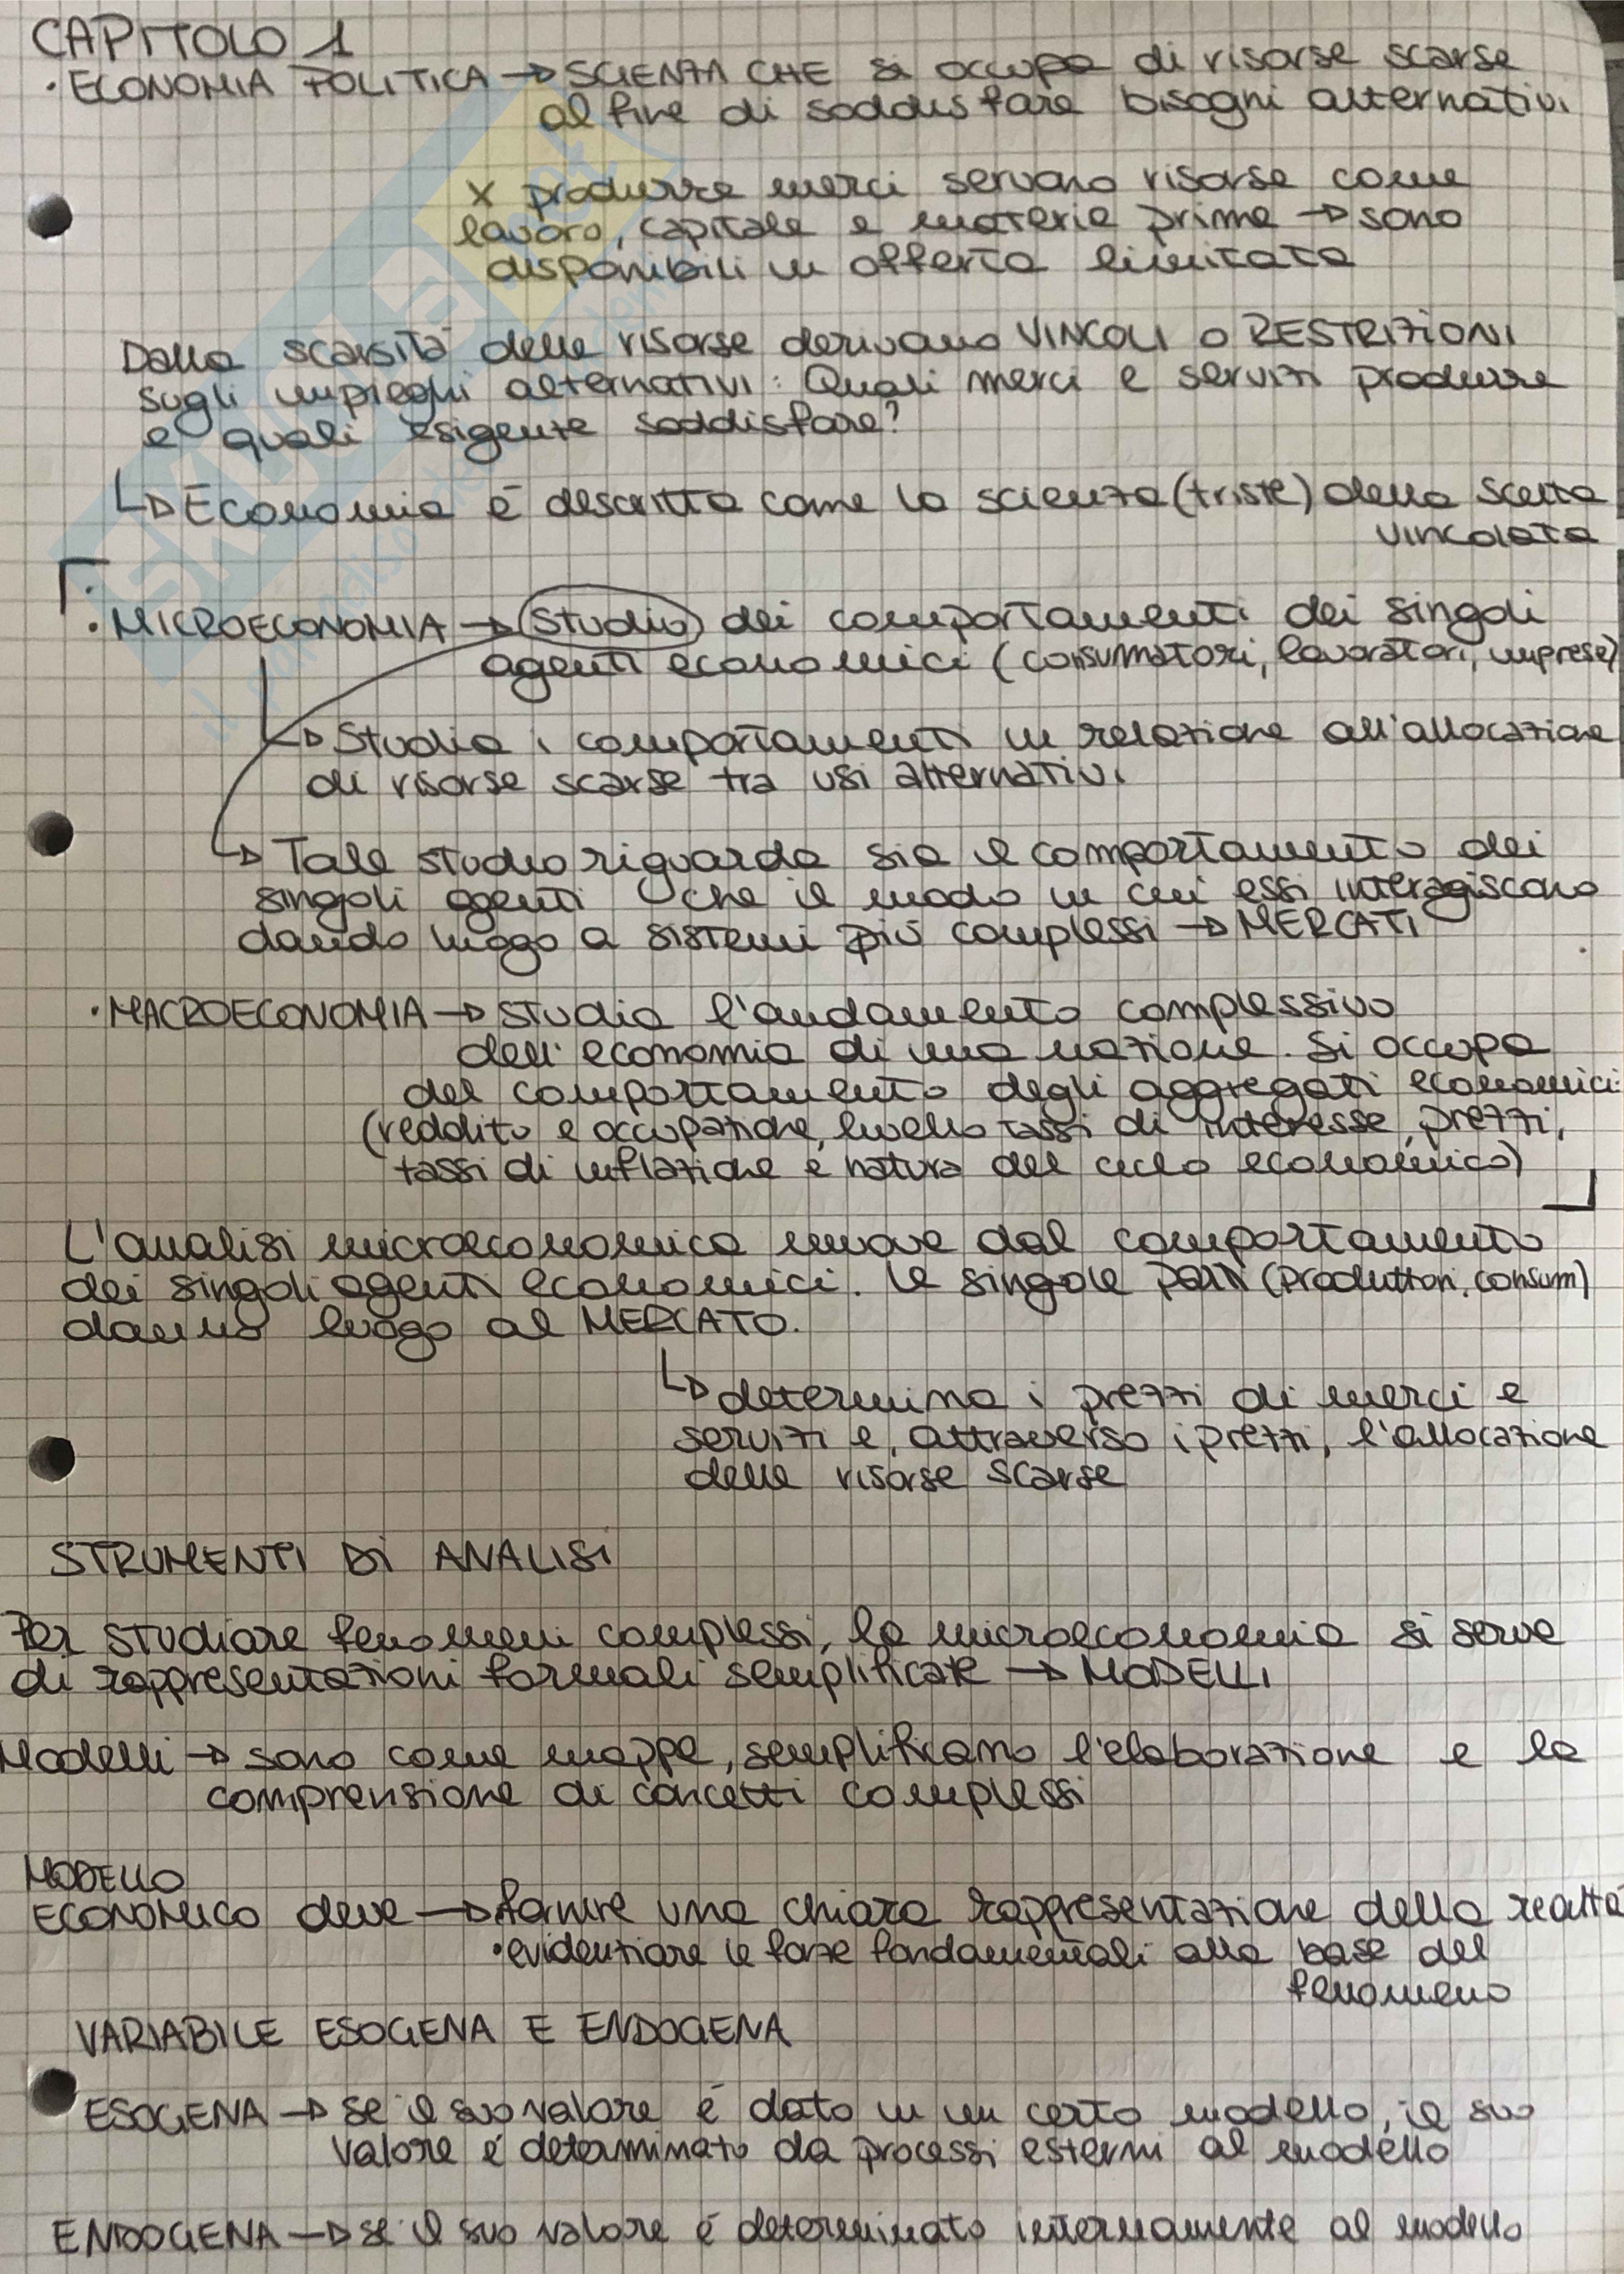 CAPITOLO 1
· ECONOMIA POLITICA → SCIENZA CHE si occupa di risorse scarse
al fine di soddisfare bisogni alternativi
X produrre merci servono risorse come
lavoro, capitale e materie prime → sono
disponibili in offerta limitata
Dalla scarsità delle risorse derivano VINCOLI o RESTRIZIONI
sugli impieghi alternativi: Quali merci e servizi produrre
e quali esigenze soddisfare?
↳ Economia è descritta come la scienza (triste) della scelta
vincolata
· MICROECONOMIA → Studio dei comportamenti dei singoli
agenti economici (consumatori, lavoratori, imprese)
↳ Studia i comportamenti in relazione all'allocazione
di risorse scarse tra usi alternativi
↳ Tale studio riguarda sia il comportamento dei
singoli agenti che il modo in cui essi interagiscono
dando luogo a sistemi più complessi → MERCATI
· MACROECONOMIA → studia l'andamento complessivo
dell'economia di una nazione. Si occupa
del comportamento degli aggregati economici
(reddito e occupazione, livello tassi di interesse, prezzi,
tassi di inflazione e natura del ciclo economico)
L'analisi microeconomica muove dal comportamento
dei singoli agenti economici. Le singole parti (produttori, consum)
danno luogo al MERCATO.
↳ determina i prezzi di merci e
servizi e, attraverso i prezzi, l'allocazione
delle risorse scarse
STRUMENTI DI ANALISI
Per studiare fenomeni complessi, la microeconomia si serve
di rappresentazioni formali semplificate → MODELLI
Modelli → sono come mappe, semplificano l'elaborazione e la
comprensione di concetti complessi
MODELLO
ECONOMICO deve → · fornire una chiara rappresentazione della realtà
· evidenziare le forze fondamentali alla base del
fenomeno
VARIABILE ESOGENA E ENDOGENA
ESOGENA → se il suo valore è dato in un certo modello, il suo
valore è determinato da processi esterni al modello
ENDOGENA → se il suo valore è determinato internamente al modello